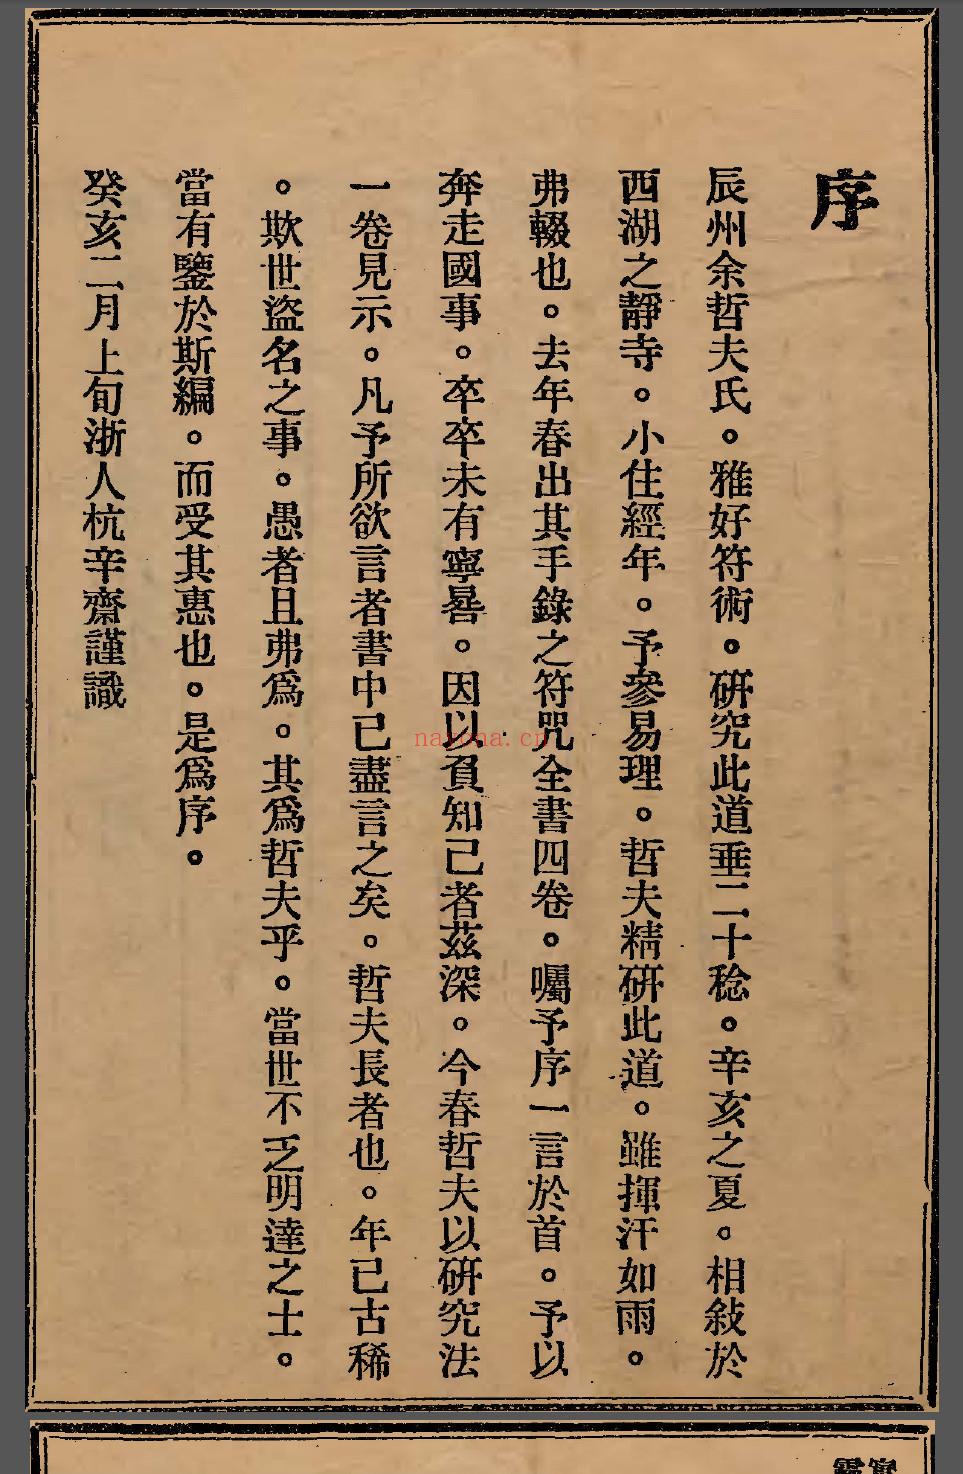 序
辰州余哲夫氏。雅好符術。硏究此道垂二十稔。辛亥之夏。相敍於
西湖之靜寺。小住經年。予參易理。哲夫精硏此道。雖揮汗如雨。
弗輟也。去年春出其手錄之符咒全書四卷。囑予序一言於首。予以
奔走國事。卒卒未有寧晷。因以負知己者茲深。今春哲夫以硏究法
一卷見示。凡予所欲言者書中已盡言之矣。哲夫長者也。年已古稀
。欺世盜名之事。愚者且弗爲。其爲哲夫乎。當世不乏明達之士。
當有鑒於斯編。而受其惠也。是爲序。
癸亥二月上旬浙人杭辛齋謹識
nayona.cn